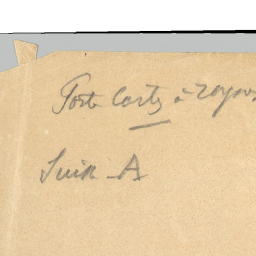 Porte Carte à rayons
Suite A